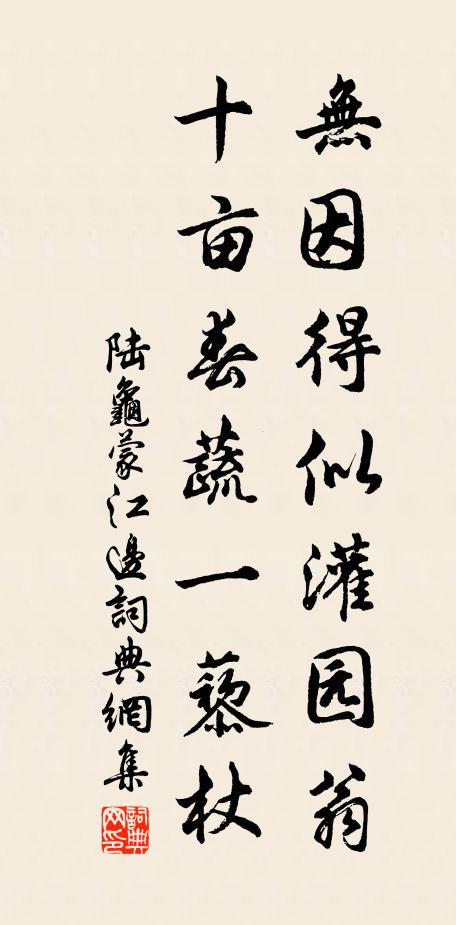 無因得似灌园翁
十亩春蔬一藜杖
陆龜蒙江邊詞典網集
詞典网印